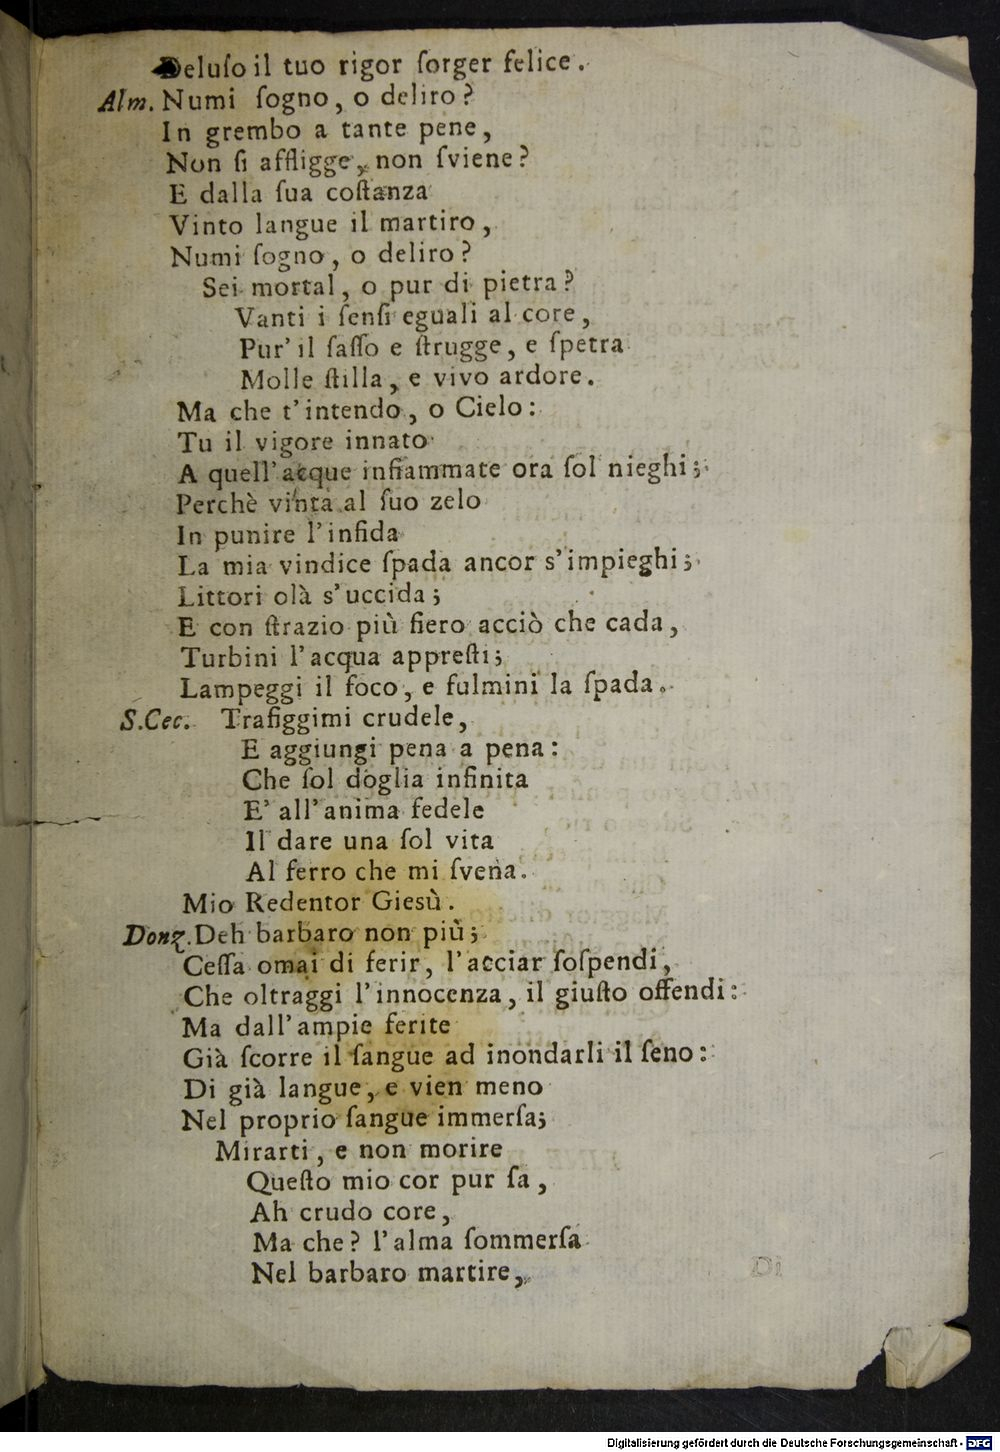 Deluſo il tuo rigor ſorger felice.
Alm. Numi ſogno, o deliro?
In grembo a tante pene,
Non ſi affligge, non ſviene?
E dalla ſua coſtanza
Vinto langue il martiro,
Numi ſogno, o deliro?
Sei mortal, o pur di pietra?
Vanti i ſenſi eguali al core,
Pur' il ſaſſo e ſtrugge, e ſpetra
Molle ſtilla, e vivo ardore.
Ma che t'intendo, o Cielo:
Tu il vigore innato
A quell'acque infiammate ora ſol nieghi;
Perchè vinta al ſuo zelo
In punire l'infida
La mia vindice ſpada ancor s'impieghi;
Littori olà s'uccida;
E con ſtrazio più fiero acciò che cada,
Turbini l'acqua appreſti;
Lampeggi il foco, e fulmini la ſpada.
S.Cec. Trafiggimi crudele,
E aggiungi pena a pena:
Che ſol doglia infinita
E' all'anima fedele
Il dare una ſol vita
Al ferro che mi ſvena.
Mio Redentor Giesù.
Donz. Deh barbaro non più;
Ceſſa omai di ferir, l'acciar ſoſpendi,
Che oltraggi l'innocenza, il giuſto offendi:
Ma dall'ampie ferite
Già ſcorre il ſangue ad inondarli il ſeno:
Di già langue, e vien meno
Nel proprio ſangue immerſa;
Mirarti, e non morire
Queſto mio cor pur ſa,
Ah crudo core,
Ma che? l'alma ſommerſa
Nel barbaro martire,
Di
Digitalisierung gefördert durch die Deutsche Forschungsgemeinschaft - DFG